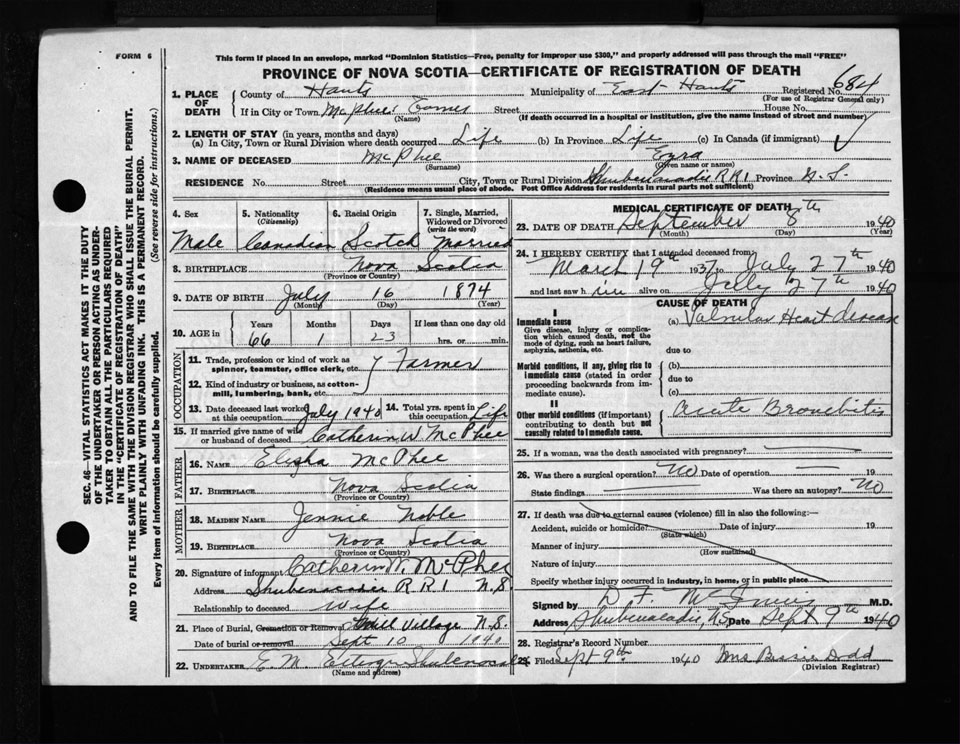 FORM 6
This form if placed in an envelope, marked "Dominion Statistics—Free, penalty for improper use $300," and properly addressed will pass through the mail "FREE"
PROVINCE OF NOVA SCOTIA—CERTIFICATE OF REGISTRATION OF DEATH
1. PLACE OF DEATH
County of Hants Municipality of East Hants Registered No. 684
(For use of Registrar General only)
If in City or Town McPhee Corner Street House No.
(Name) (If death occurred in a hospital or institution, give the name instead of street and number)
2. LENGTH OF STAY (in years, months and days)
(a) In City, Town or Rural Division where death occurred Life (b) In Province Life (c) In Canada (if immigrant)
3. NAME OF DECEASED McPhee Ezra
(Surname) (Given name or names)
RESIDENCE No. Street City, Town or Rural Division Shubenacadie R R 1 Province N. S.
(Residence means usual place of abode. Post Office Address for residents in rural parts not sufficient)
4. Sex 5. Nationality (Citizenship) 6. Racial Origin 7. Single, Married, Widowed or Divorced (write the word)
Male Canadian Scotch Married
8. BIRTHPLACE Nova Scotia
(Province or Country)
9. DATE OF BIRTH July 16 1874
(Month) (Day) (Year)
10. AGE in Years Months Days If less than one day old
66 1 23 hrs. or min.
OCCUPATION
11. Trade, profession or kind of work as spinner, teamster, office clerk, etc. Farmer
12. Kind of industry or business, as cotton-mill, lumbering, bank, etc.
13. Date deceased last worked at this occupation July 1940 14. Total yrs. spent in this occupation Life
15. If married give name of wife or husband of deceased Catherin W McPhee
FATHER
16. NAME Elisha McPhee
17. BIRTHPLACE Nova Scotia
(Province or Country)
MOTHER
18. MAIDEN NAME Jennie Noble
19. BIRTHPLACE Nova Scotia
(Province or Country)
20. Signature of informant Catherin W. McPhee
Address Shubenacadie R R 1 N.S.
Relationship to deceased Wife
21. Place of Burial, Cremation or Removal Village N.S.
Date of burial or removal Sept 10 1940
22. UNDERTAKER E M
(Name and address)
MEDICAL CERTIFICATE OF DEATH
23. DATE OF DEATH September 8th 1940
(Month) (Day) (Year)
24. I HEREBY CERTIFY that I attended deceased from
March 19th 1937 to July 27th 1940
and last saw him alive on July 27th 1940
CAUSE OF DEATH
I
Immediate cause
Give disease, injury or complication which caused death, not the mode of dying, such as heart failure, asphyxia, asthenia, etc.
(a) Valvular Heart disease
due to
Morbid conditions, if any, giving rise to immediate cause (stated in order proceeding backwards from immediate cause).
(b)
due to
(c)
II
Other morbid conditions (if important) contributing to death but not causally related to immediate cause.
Acute Bronchitis
25. If a woman, was the death associated with pregnancy?
26. Was there a surgical operation? No Date of operation 19
State findings Was there an autopsy? No
27. If death was due to external causes (violence) fill in also the following:—
Accident, suicide or homicide? Date of injury 19
(State which)
Manner of injury
(How sustained)
Nature of injury
Specify whether injury occurred in industry, in home, or in public place
Signed by D. F. M.D.
Address Shubenacadie, N.S. Date Sept 9th 1940
28. Registrar's Record Number
29. Filed Sept 9th 1940 Mrs Dodd
(Division Registrar)
SEC. 46—VITAL STATISTICS ACT MAKES IT THE DUTY
OF THE UNDERTAKER OR PERSON ACTING AS UNDER-
TAKER TO OBTAIN ALL THE PARTICULARS REQUIRED
IN THE "CERTIFICATE OF REGISTRATION OF DEATH"
AND TO FILE THE SAME WITH THE DIVISION REGISTRAR WHO SHALL ISSUE THE BURIAL PERMIT.
WRITE PLAINLY WITH UNFADING INK. THIS IS A PERMANENT RECORD.
Every item of information should be carefully supplied. (See reverse side for instructions.)